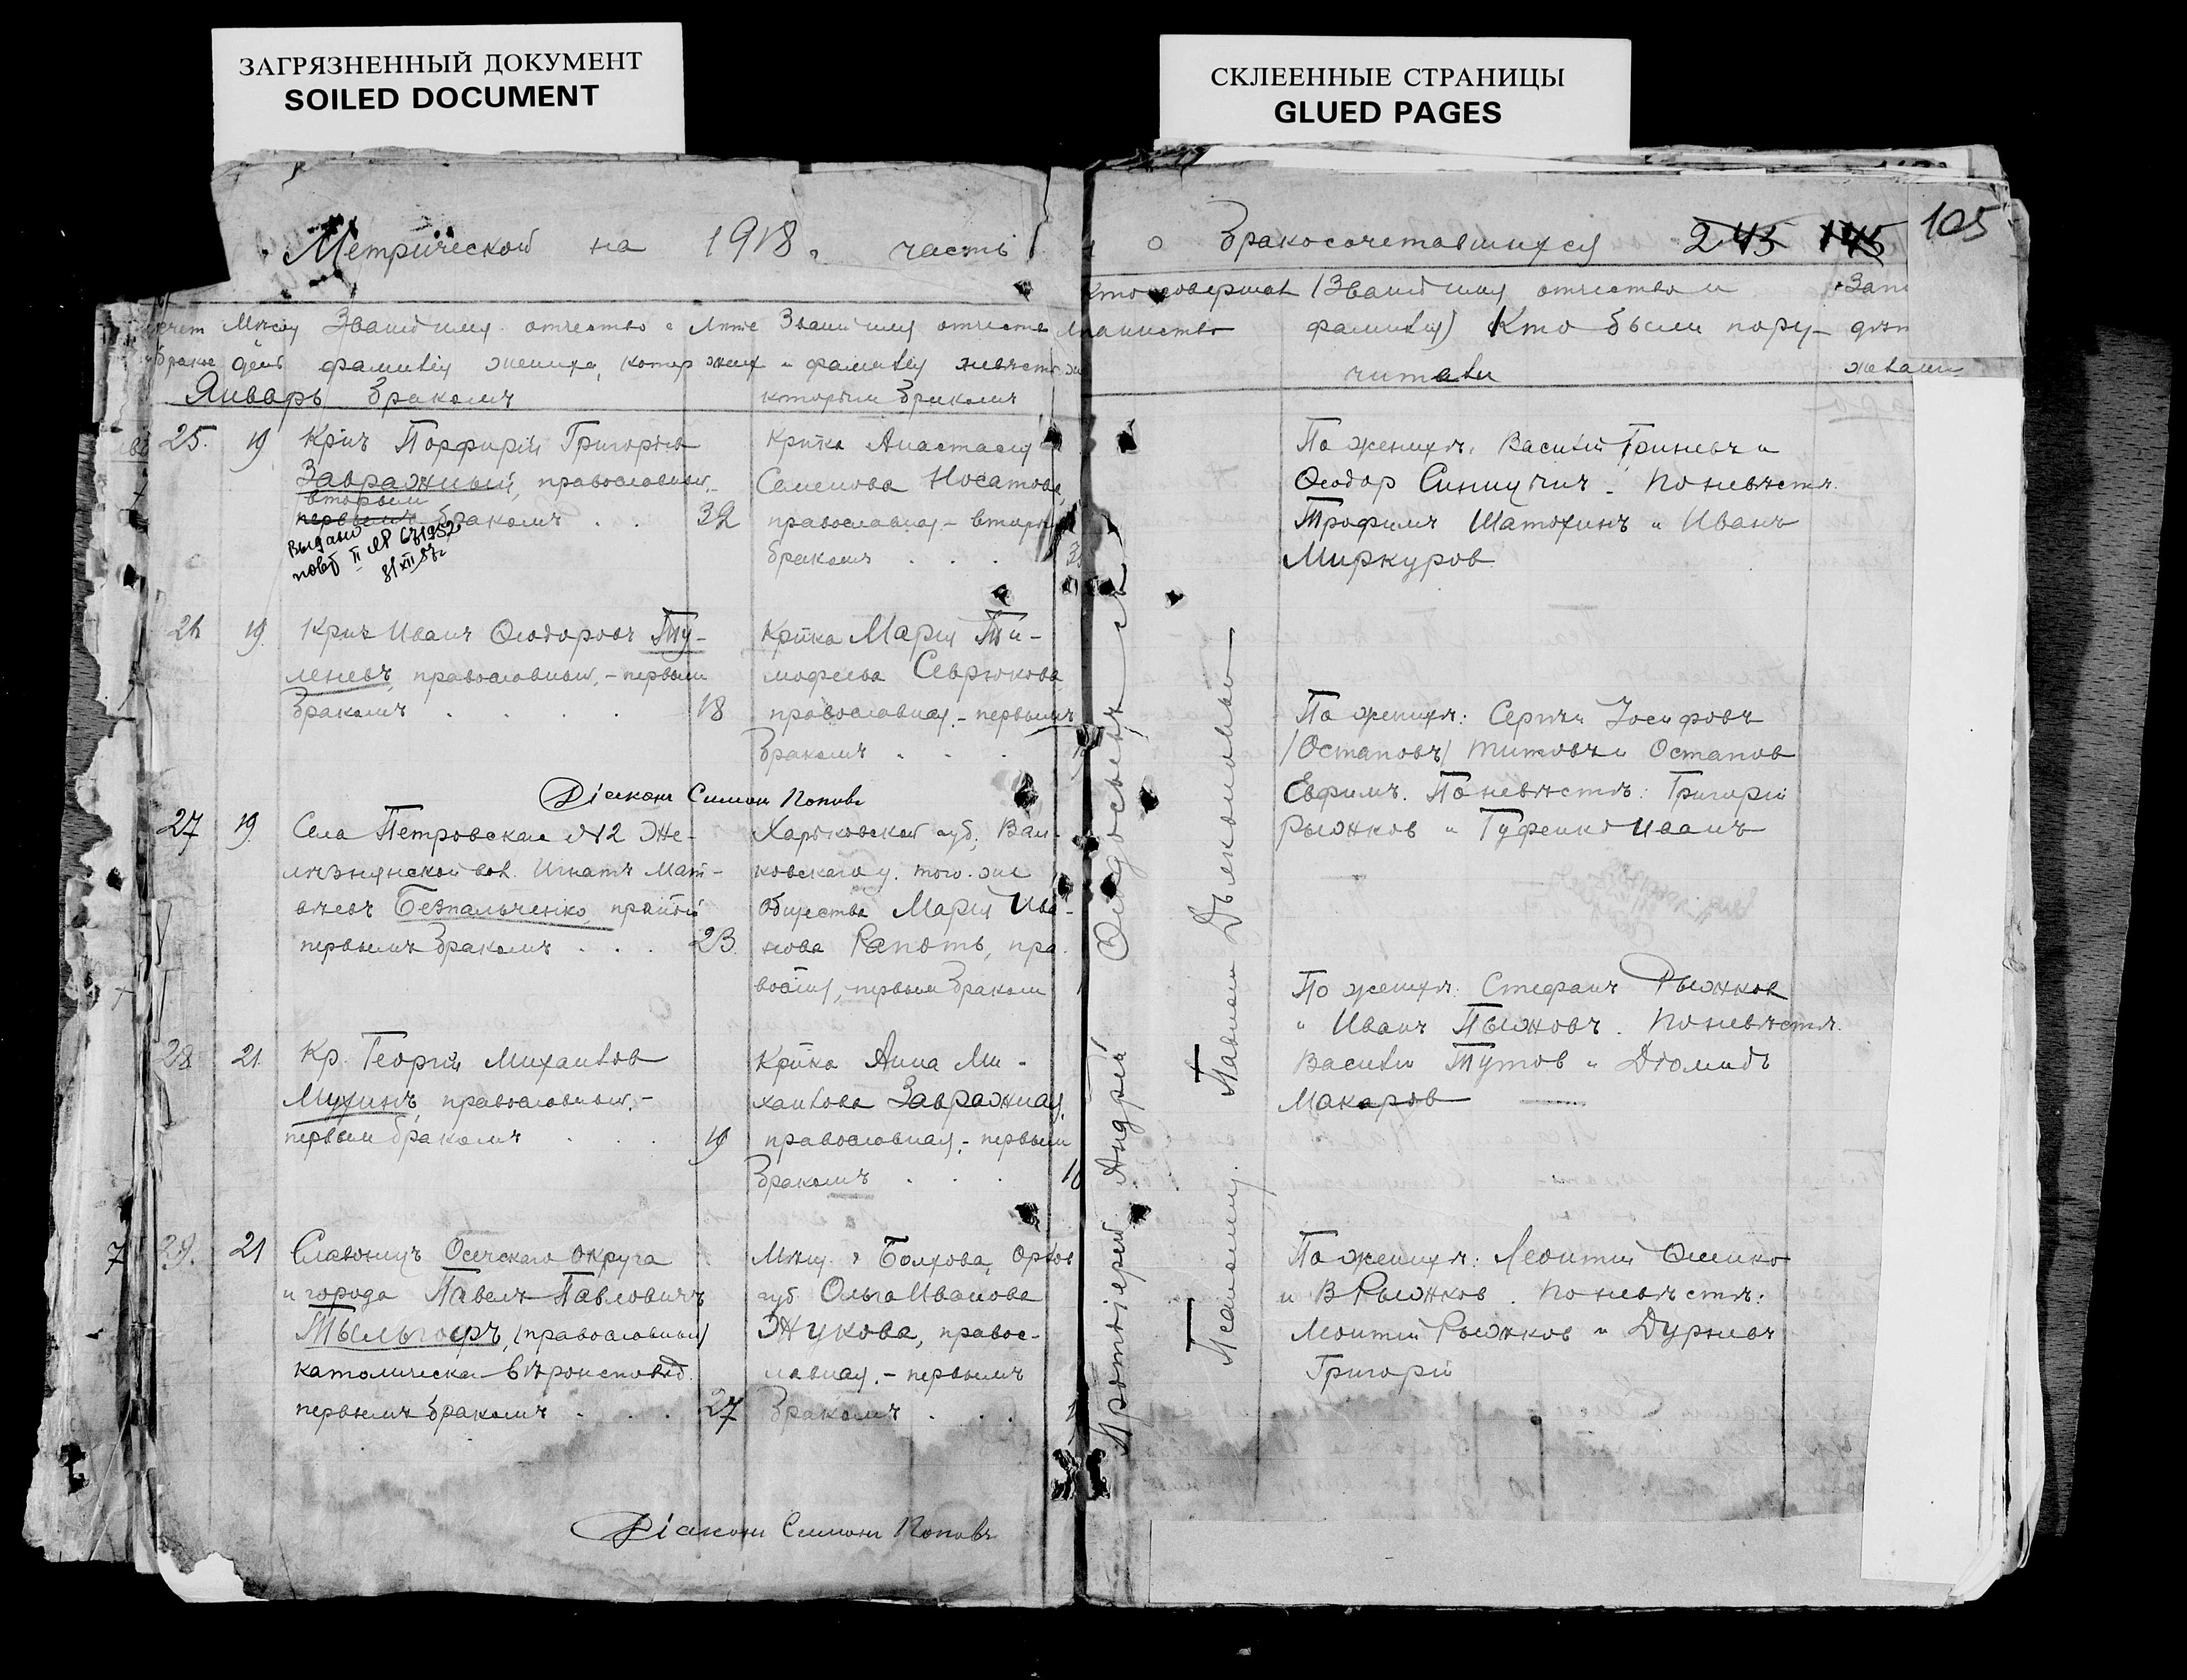 ЗАГРЯЗНЕННЫЙ ДОКУМЕНТ
SOILED DOCUMENT
СКЛЕЕННЫЕ СТРАНИЦЫ
GLUED PAGES
Метрической на 1918 г. часть
о бракосочетавшихся 245 145 105
Мѣсяц Званіе имя отчество и Лѣта Званіе имя отчество
день фамилія жениха, котор жених и фамилія невѣсты
Январь бракомъ которым бракомъ
Кто совершал (Званіе имя отчество и Запи
таинство фамилія) Кто были пору-
чители
25. 19 Крнъ Порфирій Григорьев
Завражный, православный,
вторым
первымъ бракомъ . . 32
Выдано
повт II МР 671952
31 XII 57 г
Крнка Анастасія
Семенова Носатова,
православная - вторым
бракомъ . . .
По женихѣ: Василій Гриневъ и
Ѳеодор Синицинъ. По невѣстѣ.
Трофимъ Шатохинъ и Иванъ
Миркуров
26 19. Крнъ Иванъ Ѳеодоровъ Ту-
леневъ, православный, - первым
бракомъ . . . . 18
Крнка Марія Ти-
мофеева Севрюкова
православная, - первымъ
бракомъ . . .
По женихѣ: Сергѣй Іосифовъ
(Остаповъ) Титовъ и Остапов
Евфимъ. По невѣстѣ: Григорій
Рыжков и Гуфенко Иванъ
Діаконъ Симеонъ Поповъ
27 19. Села Петровскае №2 Же-
лѣзнянской вол. Игнатъ Мат-
вѣевъ Безпальченко, прнный
первымъ бракомъ . . . 23.
Харьковской губ. Вал-
ковскаго у. того-же
общества Марія Ива-
нова Рапоть, пра-
восная, первым браком
По женихѣ: Стефанъ Рыжков
и Иванъ Пыжовъ. По невѣстѣ.
Василій Тутов и Діомидъ
Макаров
28 21. Кр. Георгій Михаилов
Мухинъ, православный, -
первым бракомъ . . . 19
Крнка Анна Ми-
хаилова Завражная,
православная, - первым
бракомъ . . .
29. 21 Славонецъ Осечскаго округа
и города Павелъ Павловичъ
Тыльгофъ, (православный)
католическа вѣроисповѣд.
первымъ бракомъ . . . 27
Мѣщ. г. Болхова, Орлов
губ Ольга Иванова
Жукова, правос-
лавная, - первымъ
бракомъ . . .
По женихѣ: Леонтій Ошенко
и В Рыжков. По невѣстѣ:
Леонтій Рыжков и Дурневъ
Григорій
Діаконъ Симеонъ Поповъ
Протоіерей Андрей Ѳеодосьевъ съ
Псаломщ. Павломъ Дьяконовью